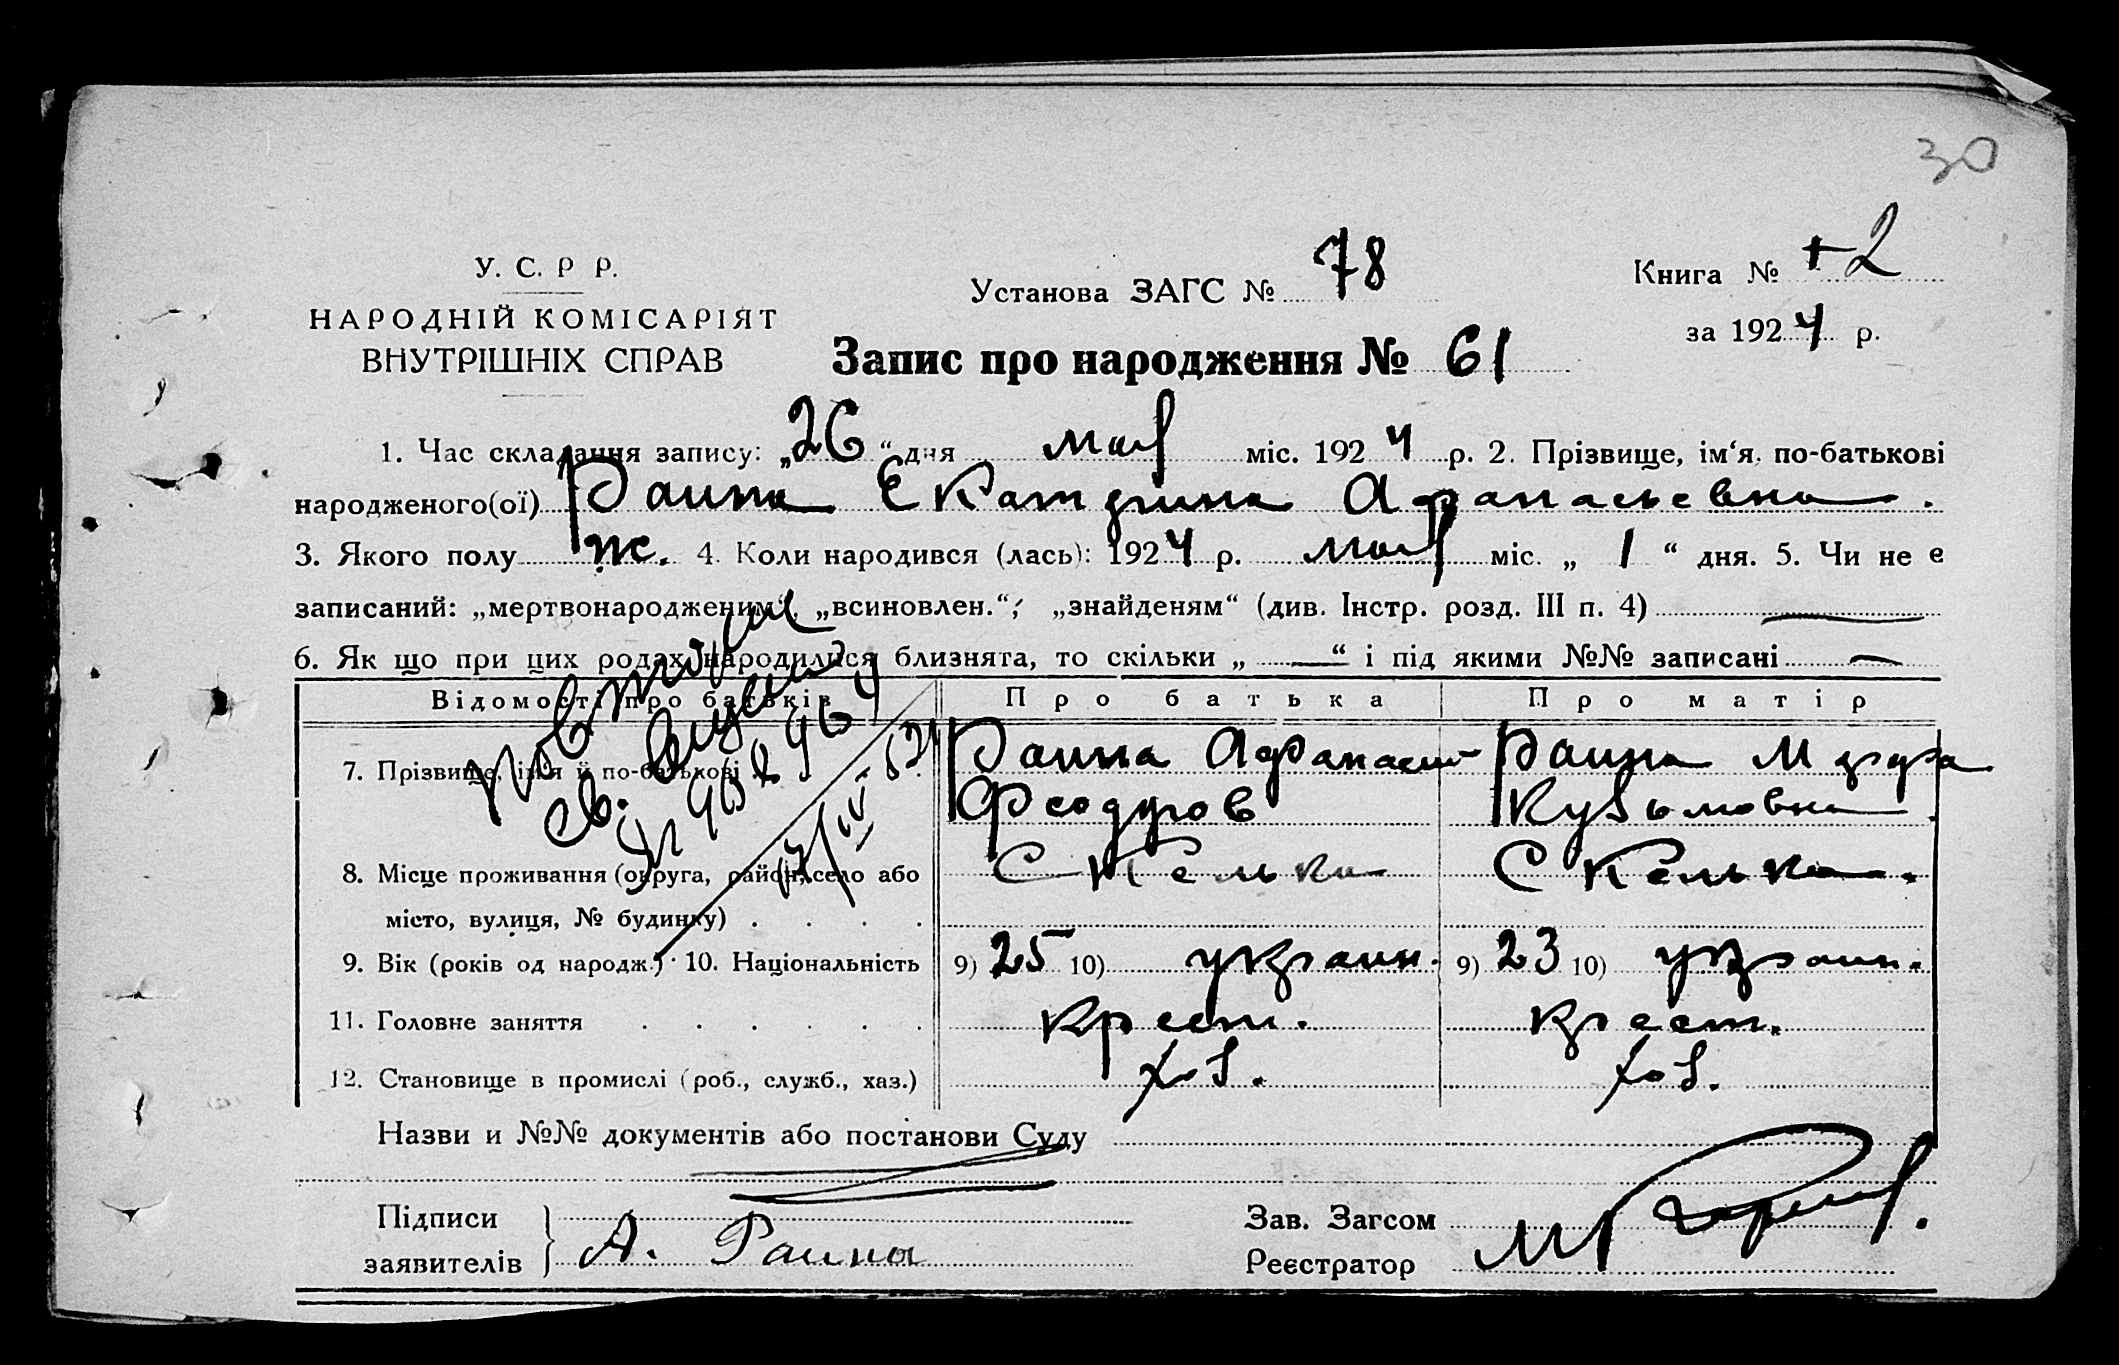 30
У. С. Р Р.
НАРОДНІЙ КОМІСАРІЯТ
ВНУТРІШНІХ СПРАВ
Установа ЗАГС № 78
Книга № 2
за 1924 р.
Запис про народження № 61
1. Час складання запису: „26“ дня мая міс. 1924 р. 2. Прізвище, ім‘я, по-батькові
народженого(ої) Раина Екатерина Афанасьевна.
3. Якого полу ж. 4. Коли народився (лась): 1924 р. мая міс. „ 1 “ дня. 5. Чи не є
записаний: „мертвонародженим“, „всиновлен.“, „знайденям“ (див. Інстр. розд. III п. 4) —
6. Як що при цих родах народилися близнята, то скільки „ — “ і під якими №№ записані —
Відомості про батьків
Про батька
Про матір
повторное
св.
7. Прізвище, ім'я й по-батькові
Раина Афанасий
Феодоров
Раина
Кузьмовна
8. Місце проживання (округа, район, село або
місто, вулиця, № будинку)
Скелька
Скелька.
9. Вік (років од народж.) 10. Національність
9) 25 10) украин.
9) 23 10) украин.
11. Головне заняття
крест.
крест.
12. Становище в промислі (роб., служб., хаз.)
хоз.
хоз.
Назви и №№ документів або постанови Суду
Підписи
заявителів
А. Раина
Зав. Загсом
Реєстратор